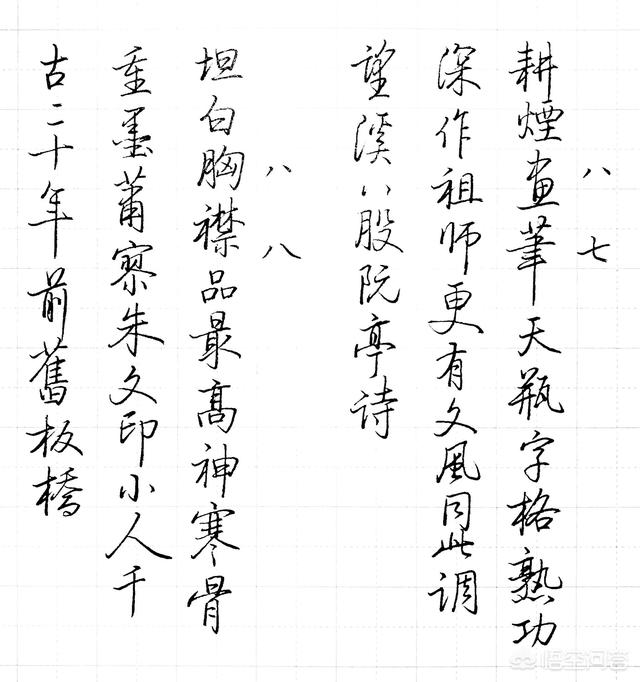 八七
耕煙畫筆天瓶字格熟功
深作祖師更有文風同此调
望溪八股阮亭诗
八八
坦白胸襟品最高神寒骨
重墨蕭寥朱文印小人千
古二十年前舊板橋
悟空问答